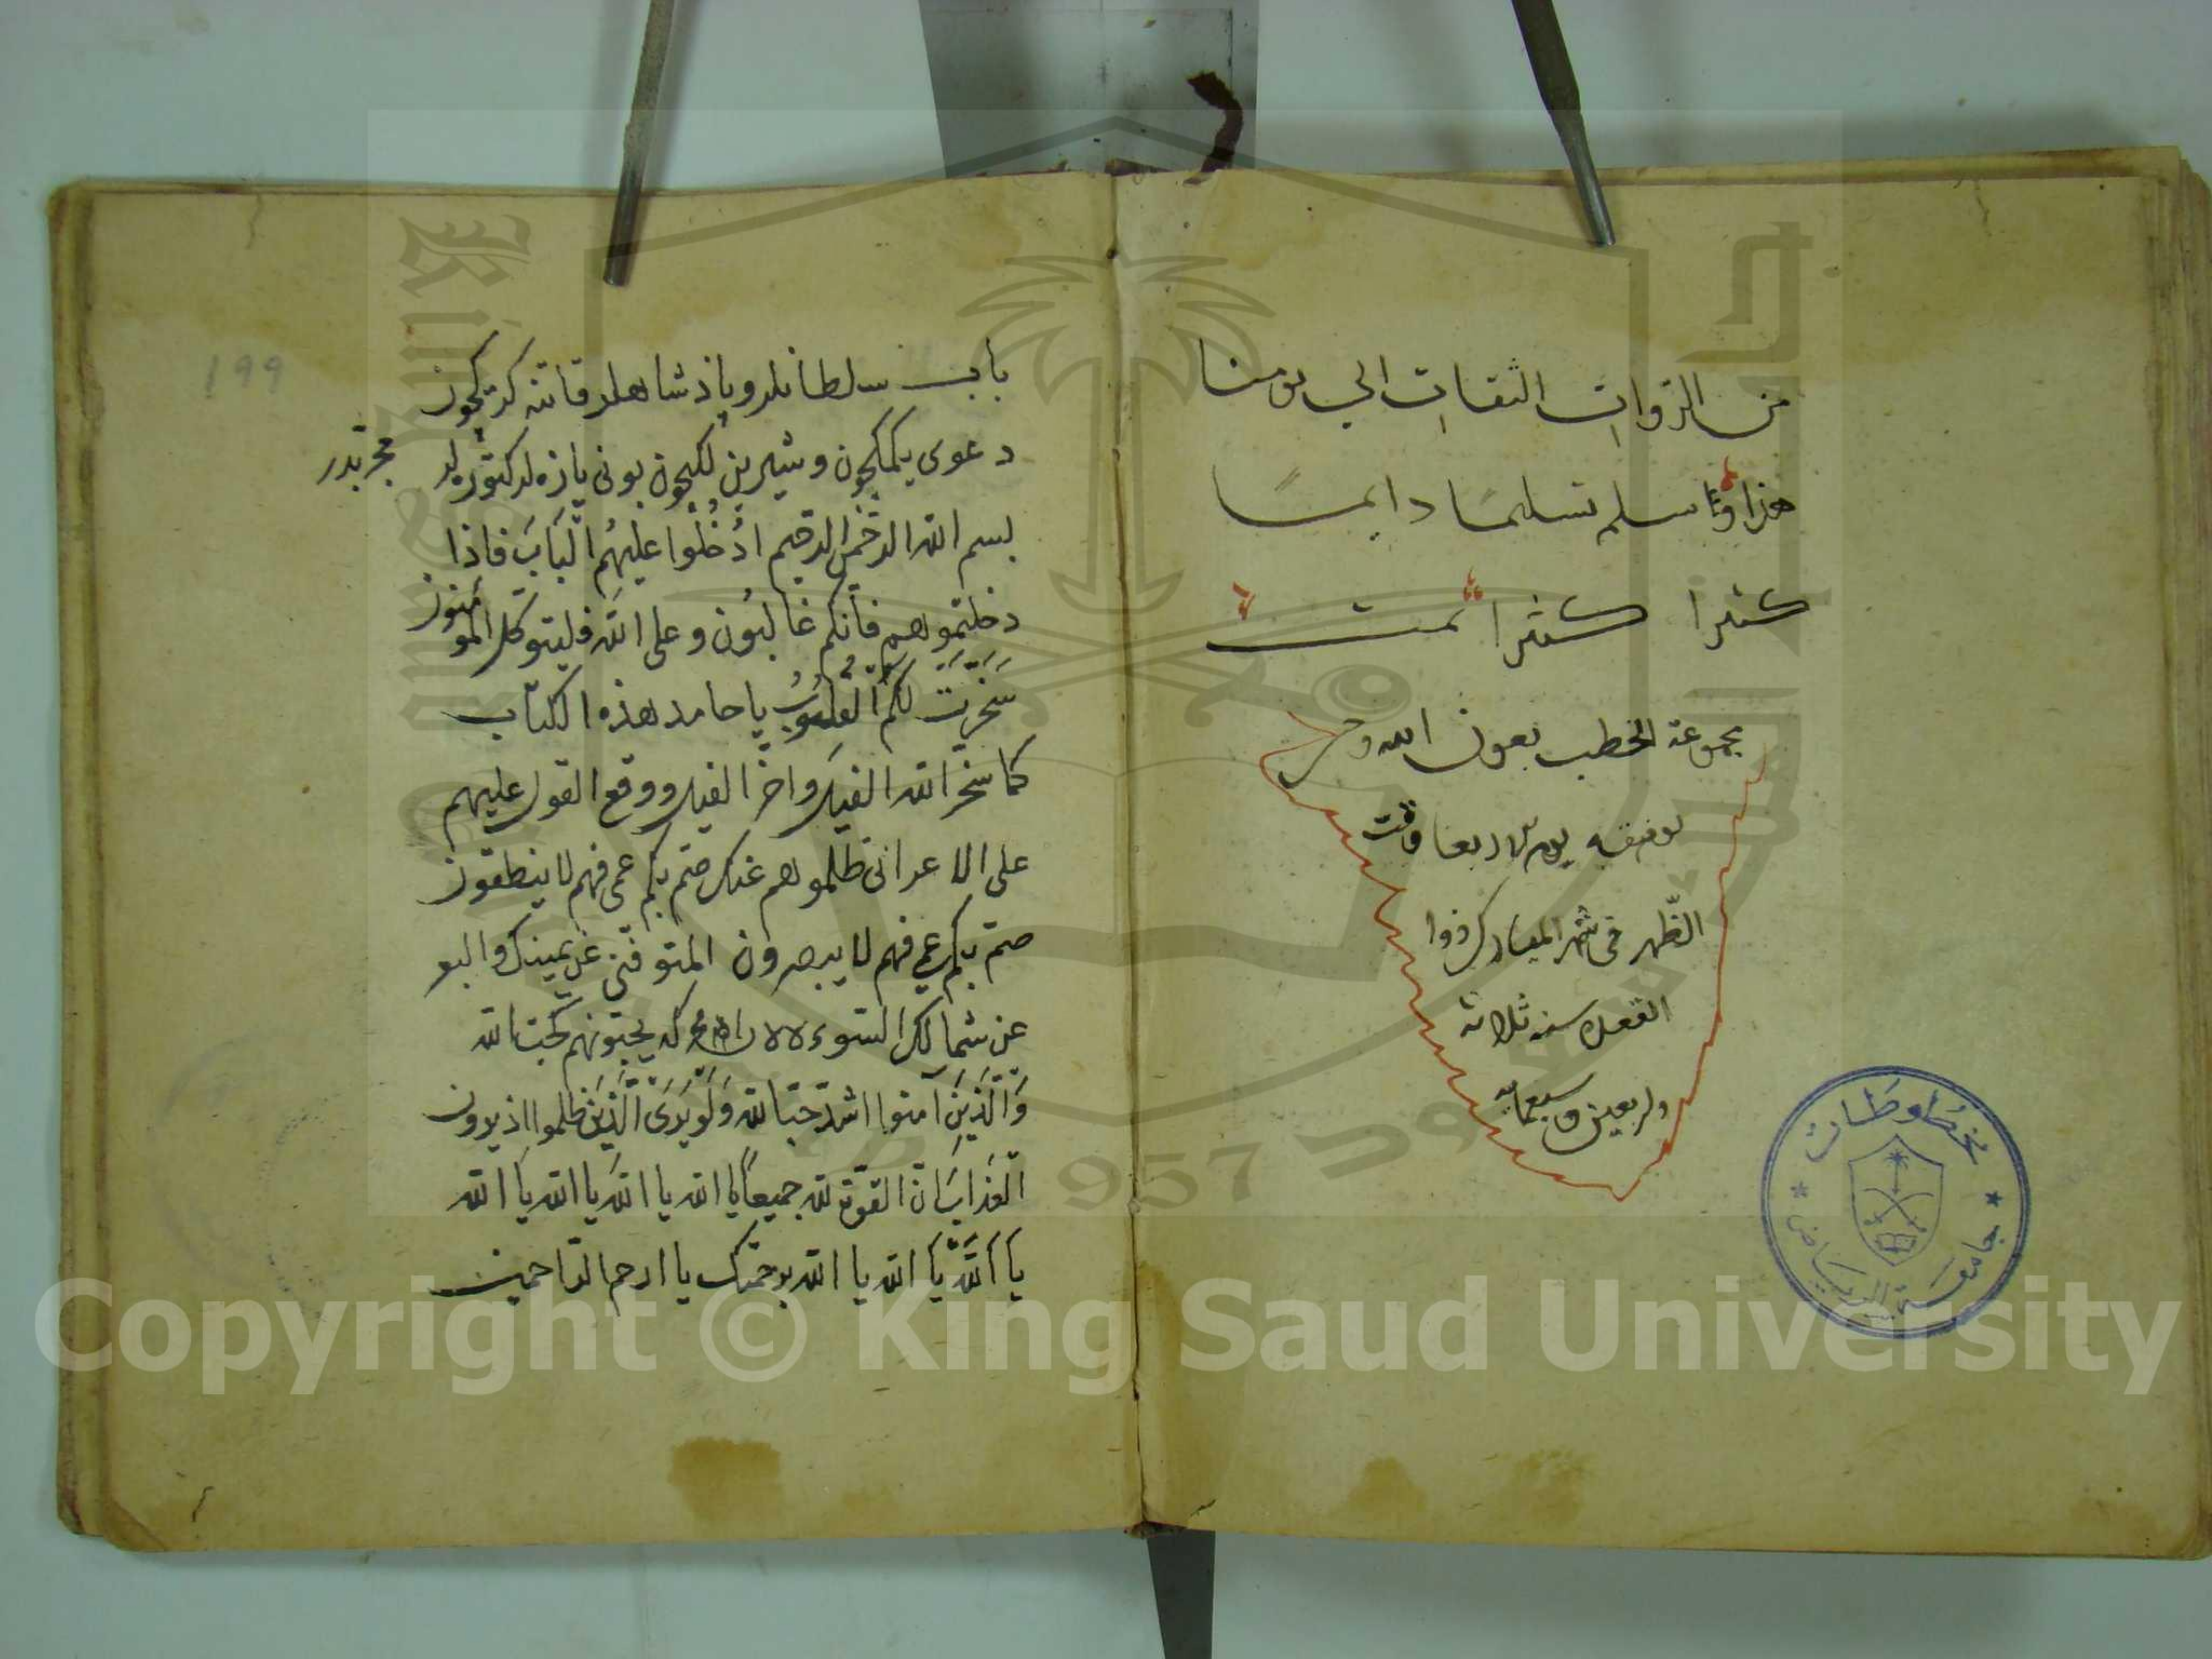 من الروات الثقات الى يومنا
هذا وسلم تسليما دايما
كثيرا كثيرا تمت
مجموعة الخطب بعون الله وحسن
توفيقه يوم الاربعا وقت
الظهر فى شهر المبارك ذوا
القعده سنه ثلاثة
واربعين وسبعمائة
مخطوطات
جامعة الرياض
199
باب سلطانلر وپاذشاهلر قاتنه كرمكچون
دعوى يكمكچون وشيرين لكيچون بونى يازه لر كتوره لر مجربدر
بسم الله الرحمن الرحيم ادْخُلُوا عليهُم الْبَابَ فاذا
دخلتموهم فانكم غالبُون وعلى الله فليتوكل المؤمنون
سَخَّرَتْ لكم القلُوبُ يا حامد هذه الكتاب
كما سخر الله الفيل واخر الفيل ووقع القول عليهم
على الاعدا ظلموهم عنك صم بكم عمى فهم لا ينطقون
صم بكم عمى فهم لا يبصرون المتوفنى عن يمينك والبعر
عن شمالك السوء يحبونهم كحب الله
وَالَّذِينَ آمنوا اشد حبا لله وَلَوْ يَرَى الَّذِينَ ظلموا اذ يرون
الْعذاب ان القوة لله جميعًا يا الله يا الله يا الله يا الله
يا الله يا الله يا الله برحمتك يا ارحم الراحمين
Copyright © King Saud University
957